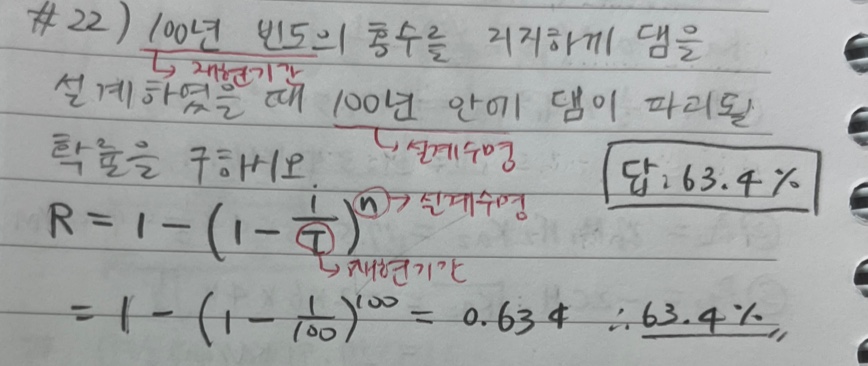 #22) 100년 빈도의 홍수를 저지하게 댐을
↳ 재현기간
설계하였을 때 100년 안에 댐이 파괴될
↳ 설계수명
확률을 구하시오.
답: 63.4%
R = 1 - (1 - 1/T)^n → 설계수명
↳ 재현기간
= 1 - (1 - 1/100)^100 = 0.634 ∴ 63.4%〃